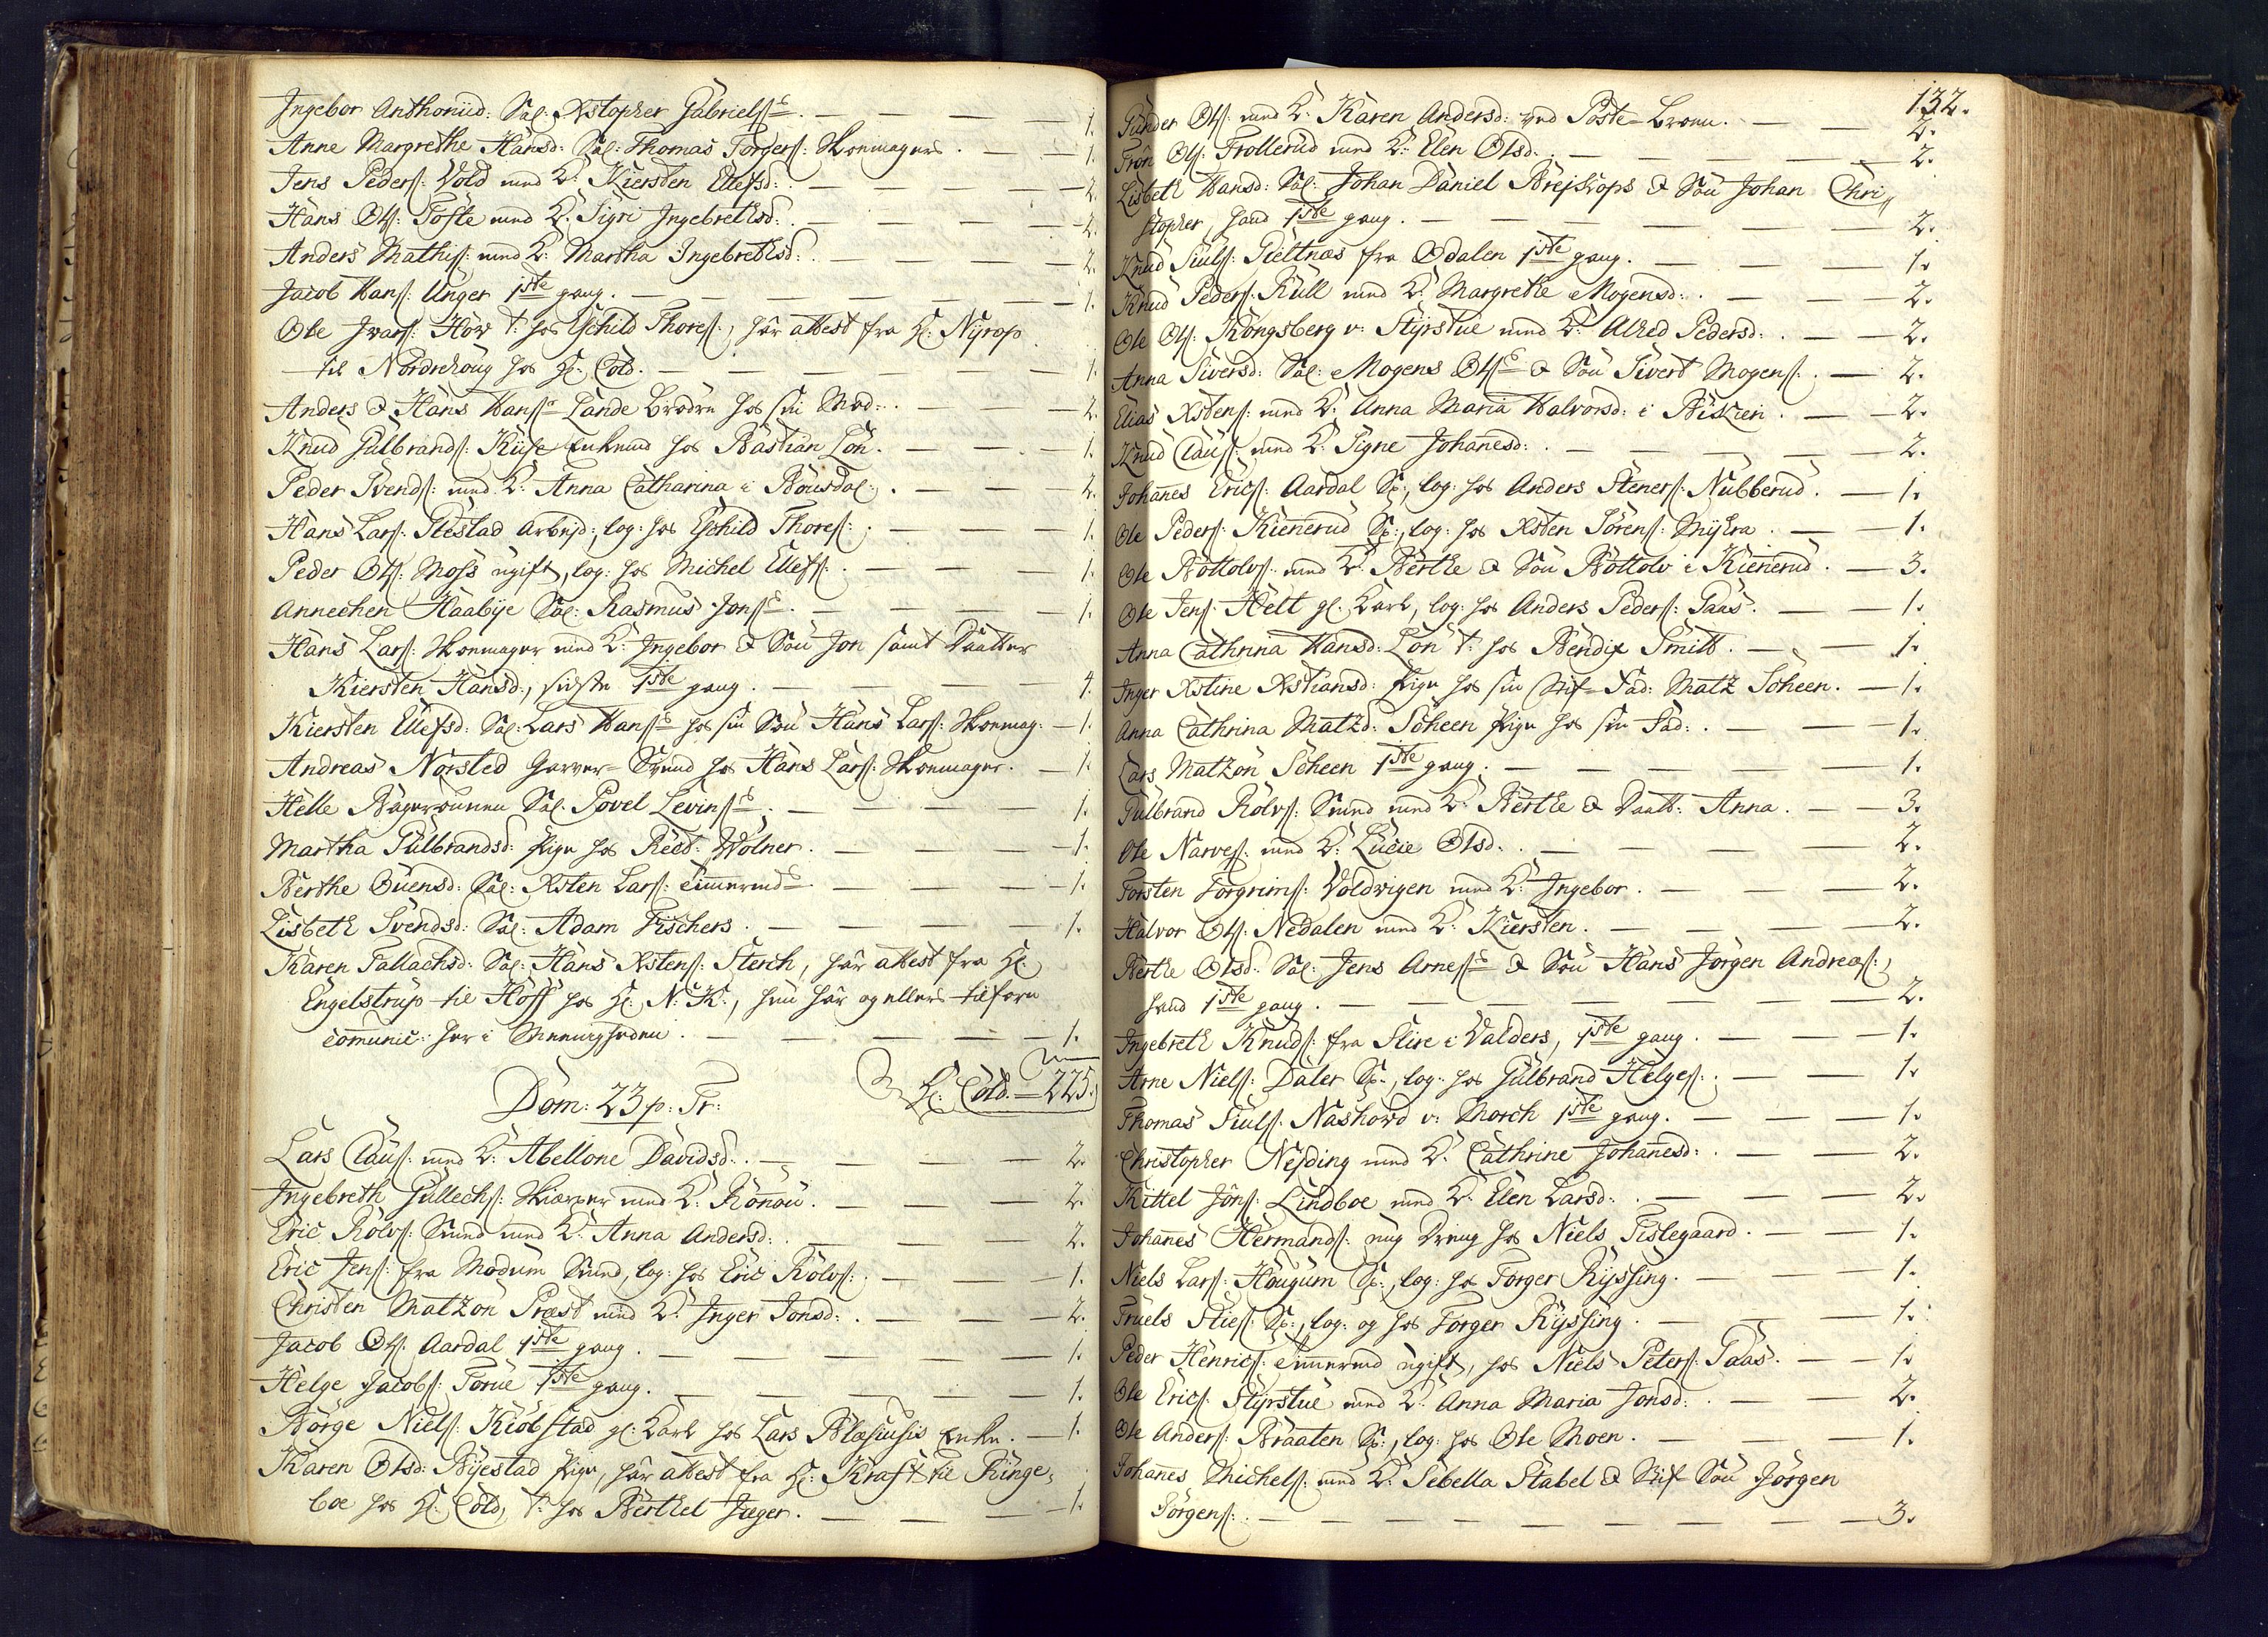 Ingebor Anthoniid: Sal: Xstopher Gabrielsˢ. — 1.
Anne Margrethe Hansd: Sal: Thomas Torgers: Skoemagers. — 1.
Jens Peders: Vold med K: Kiersten Ellefsd: — 2.
Hans Ols: Tofte med K: Sigri Ingebrethsd: — 2.
Anders Mathis: med K: Martha Ingebrethsd: — 2.
Jacob Hans: Unger 1ste gang. — 1.
Ole Ivars: Hov t: hos Eschild Thores:, har attest fra Hr: Nyrop
til Nordrehoug hos Hr: Cold. — 1.
Anders & Hans Hansˢ Lande Brødre hos sin Mod: — 2.
Knud Gulbrands: Kuse Enkemd hos Bastian Lon. — 1.
Peder Svends: med K: Anna Catharina i Bousdal: — 2.
Hans Lars: Slestad arbejd:, log: hos Eschild Thores: — 1.
Peder Ols: Moss ugift, log: hos Michel Ellefs: — 1.
Annechen Haabye Sal: Rasmus Jonsˢ. — 1.
Hans Lars: Skoemager med K: Ingebor & Søn Jon samt Daatter
Kiersten Hansd:, sidste 1ste gang. — 4.
Kiersten Ellefsd: Sal: Lars Hansˢ hos sin Søn Hans Lars: Skoemag: — 1.
Andreas Norsted Garver-Svend hos Hans Lars: Skoemager. — 1.
Helle Sal: Povel Levinsˢ. — 1.
Martha Gulbrandsd: Pige hos Resd: Wolner. — 1.
Berthe Evensd: Sal: Xsten Lars: Timermdˢ. — 1.
Lisbeth Svendsd: Sal: Adam Fischers. — 1.
Karen Tallachsd: Sal: Hans Xstens: Sterch, har attest fra Hr:
Engelstrup til Hoff hos Hr: N: K:, hun har og ellers tilforn
comunic: her i Meenigheden. — 1.
Hr: Cold. — 225.
Dom: 23 p: Tr:
Lars Claus: med K: Abellone Davidsd: — 2.
Ingebreth Gullechs: Skiærper med K: Ronnou. — 2.
Eric Rolvs: Smed med K: Anna Andersd: — 2.
Eric Jens: fra Modum Smed, log: hos Eric Rolvs: — 1.
Christen Matzon Præst med K: Inger Jonsd: — 2.
Jacob Ols: Aardal 1ste gang. — 1.
Helge Jacobs: Torue 1ste gang. — 1.
Børge Niels: Kiøbstad gl: Karl hos Lars Blasiusis Enke. — 1.
Karen Olsd: Byestad Pige, har attest fra Hr: Kraft til Ringe-
boe hos Hr: Cold, t: hos Berthel Jæger. — 1.
132.
Gunder Ols: med K: Karen Andersd: ved Poste-Broen. — 2.
Tron Ols: Trollerud med K: Elen Olsd: — 2.
Lisbeth Hansd: Sal: Johan Daniel Brejskops & Søn Johan Chri-
stopher, hand 1ste gang. — 2.
Knud Siuls: Sieltnæs fra Odalen 1ste gang. — 1.
Knud Peders: Kull med K: Margrethe Mogensd: — 2.
Ole Ols: Kongsberg v: Styrstue med K: Alhed Pedersd: — 2.
Anna Siversd: Sal: Mogens Olsˢ & Søn Sivert Mogens: — 2.
Elias Xstens: med K: Anna Maria Halvorsd: i Bekken. — 2.
Knud Claus: med K: Signe Johanesd: — 2.
Johanes Erics: Aardal S:, log: hos Anders Steners: Nubberud. — 1.
Ole Peders: Kiennerud S:, log: hos Xsten Sørens: Myhra. — 1.
Ole Bottolvs: med K: Berthe & Søn Bottolv i Kiennerud. — 3.
Ole Jens: Helt gl: Karl, log: hos Anders Peders: Saas. — 1.
Anna Cathrina Hansd: Lon t: hos Bendix Smitt. — 1.
Inger Xstine Xstiansd: Pige hos sin Stif-Fad: Matz Scheen. — 1.
Anna Cathrina Matzd: Scheen Pige hos sin Fad: — 1.
Lars Matzon Scheen 1ste gang. — 1.
Gulbrand Rolvs: Smed med K: Berthe & Daatt: Anna. — 3.
Ole Narves: med K: Lucie Olsd: — 2.
Torsten Torgrims: Voldvigen med K: Ingebor. — 2.
Halvor Ols: Nedalen med K: Kiersten. — 2.
Berthe Olsd: Sal: Jens Arnesˢ & Søn Hans Jørgen Andreas:,
hand 1ste gang. — 2.
Ingebreth Knuds: fra Slire i Valders, 1ste gang. — 1.
Arne Niels: Daler S:, log: hos Gulbrand Helges: — 1.
Thomas Siuls: Naskord v: Morch 1ste gang. — 1.
Christopher Nejding med K: Cathrine Johanesd: — 2.
Kittel Jons: Lindboe med K: Elen Larsd: — 2.
Johanes Hermands: ung Dreng hos Niels Tislegaard. — 1.
Niels Lars: Hougum S:, log: hos Torger Ryssing. — 1.
Truels Sties: S:, log: og hos Torger Ryssing. — 1.
Peder Henrics: Timermd ugift, hos Niels Peters: Saas. — 1.
Ole Erics: Styrstue med K: Anna Maria Jonsd: — 2.
Ole Anders: Braaten S:, log: hos Ole Moen. — 1.
Johanes Michels: med K: Sebella Stabel & Stif-Søn Jørgen
Jørgens: — 3.